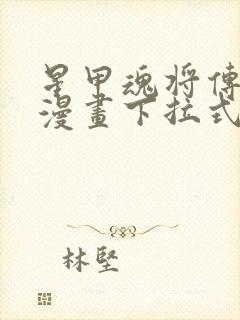 星甲魂将傳
漫畫下拉式
林堅